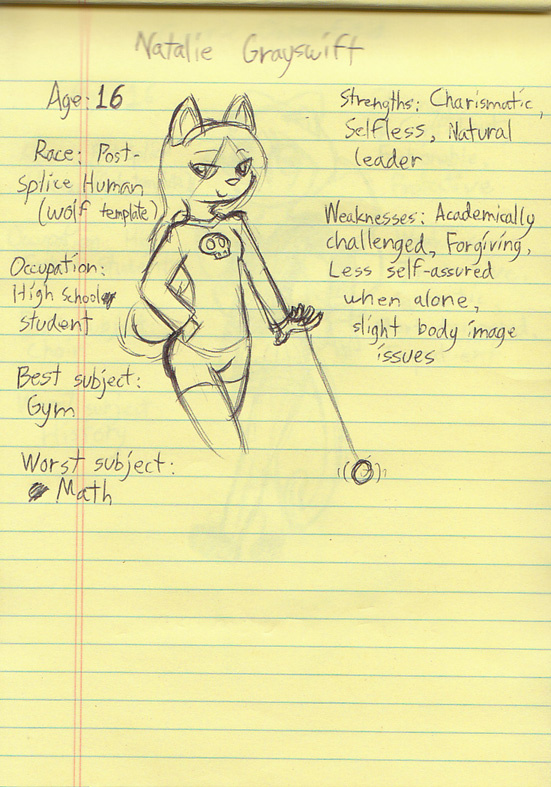 Natalie Grayswift
Age: 16
Race: Post-
Splice Human
(wolf template)
Occupation:
High School
student
Best subject:
Gym
Worst subject:
Math
Strengths: Charismatic,
Selfless, Natural
leader
Weaknesses: Academically
challenged, Forgiving,
Less self-assured
when alone,
slight body image
issues